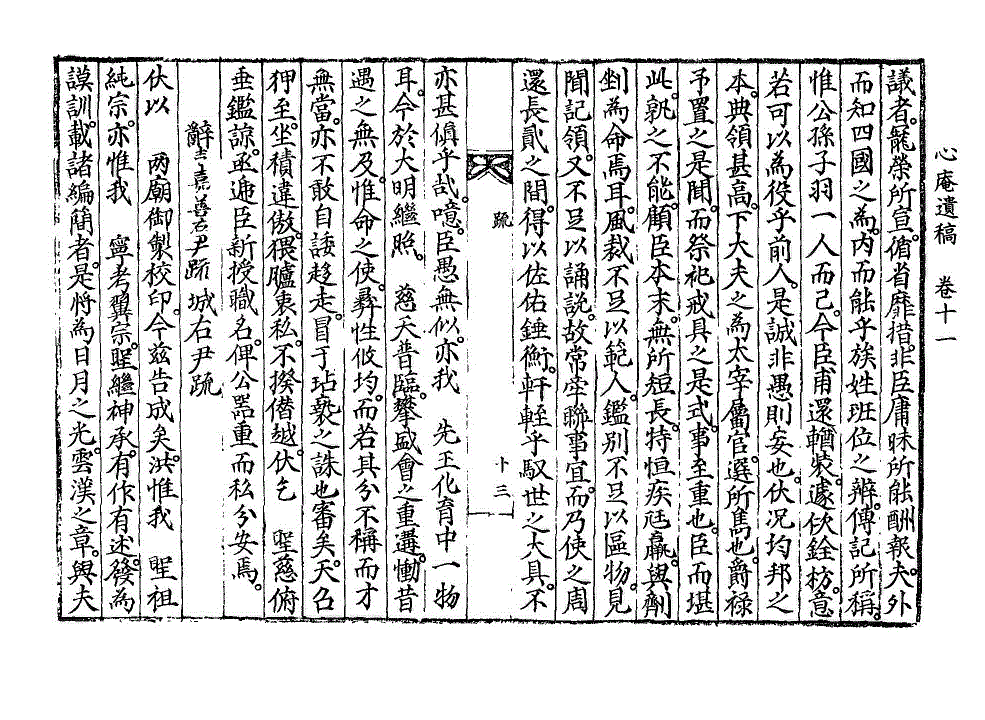 心庵遺稿　卷十一
議者。寵榮所宣。循省靡措。非臣庸昧所能酬報。夫外
而知四國之為。內而能乎族姓班位之辨。傳記所稱。
惟公孫子羽一人而已。今臣甫還輶裝。遽佽銓枋。意
若可以為役乎前人。是誠非愚則妄也。伏況均邦之
本。典領甚高。下大夫之為太宰屬官。選所雋也。爵祿
予置之是聞。而祭祀戒具之是式。事至重也。臣而堪
此。孰之不能。顧臣本末。無所短長。特恒疾尫羸。與劑
刲為命焉耳。風裁不足以範人。鑑別不足以區物。見
聞記領。又不足以誦說。故常牽聯事宜。而乃使之周
還長貳之間。得以佐佑錘衡。軒輊乎馭世之大具。不
疏
十三
亦甚傎乎哉。噫。臣愚無似。亦我　先王化育中一物
耳。今於大明繼照。　慈天普臨。攀盛會之重遘。慟昔
遇之無及。惟命之使。彝性攸均。而若其分不稱而才
無當。亦不敢自諉趍走。冒于玷褻之誅也審矣。天召
狎至。坐積違傲。猥臚衷私。不揆僭越。伏乞　聖慈俯
垂鑑諒。亟遞臣新授職名。俾公器重而私分安焉。
辭嘉善右尹疏　城右尹疏
伏以　兩廟御製校印。今玆告成矣。洪惟我　聖祖
純宗。亦惟我　寧考翼宗。聖繼神承。有作有述。發為
謨訓。載諸編簡者。是將為日月之光。雲漢之章。與夫